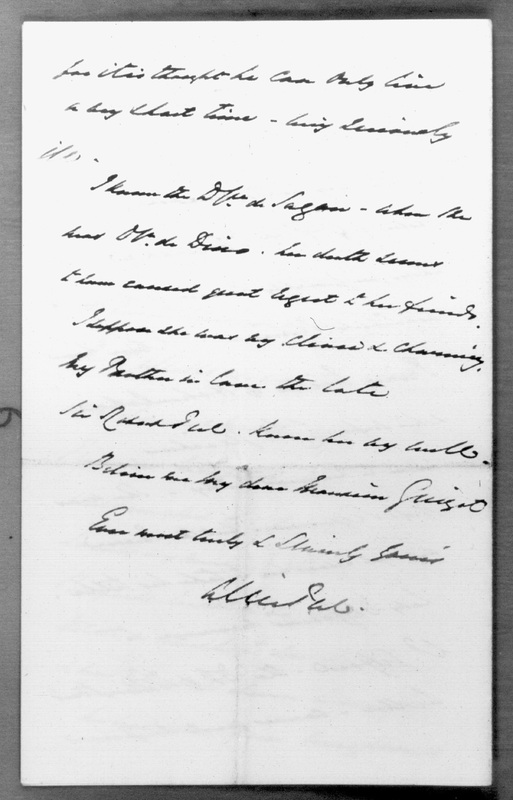 for it is thought he can only live
a very short time - being seriously
ill.
I knew the Dss. de Sagan - when she
was Dss. de Dino. her death seems
to have caused great regret to her friends.
I suppose she was very clever & charming.
My Brother in law the late
Sir Robert Peel. knew her very well.
Believe me my dear Monsieur Guizot
Ever most truly & Sincerely Yours
Peel.